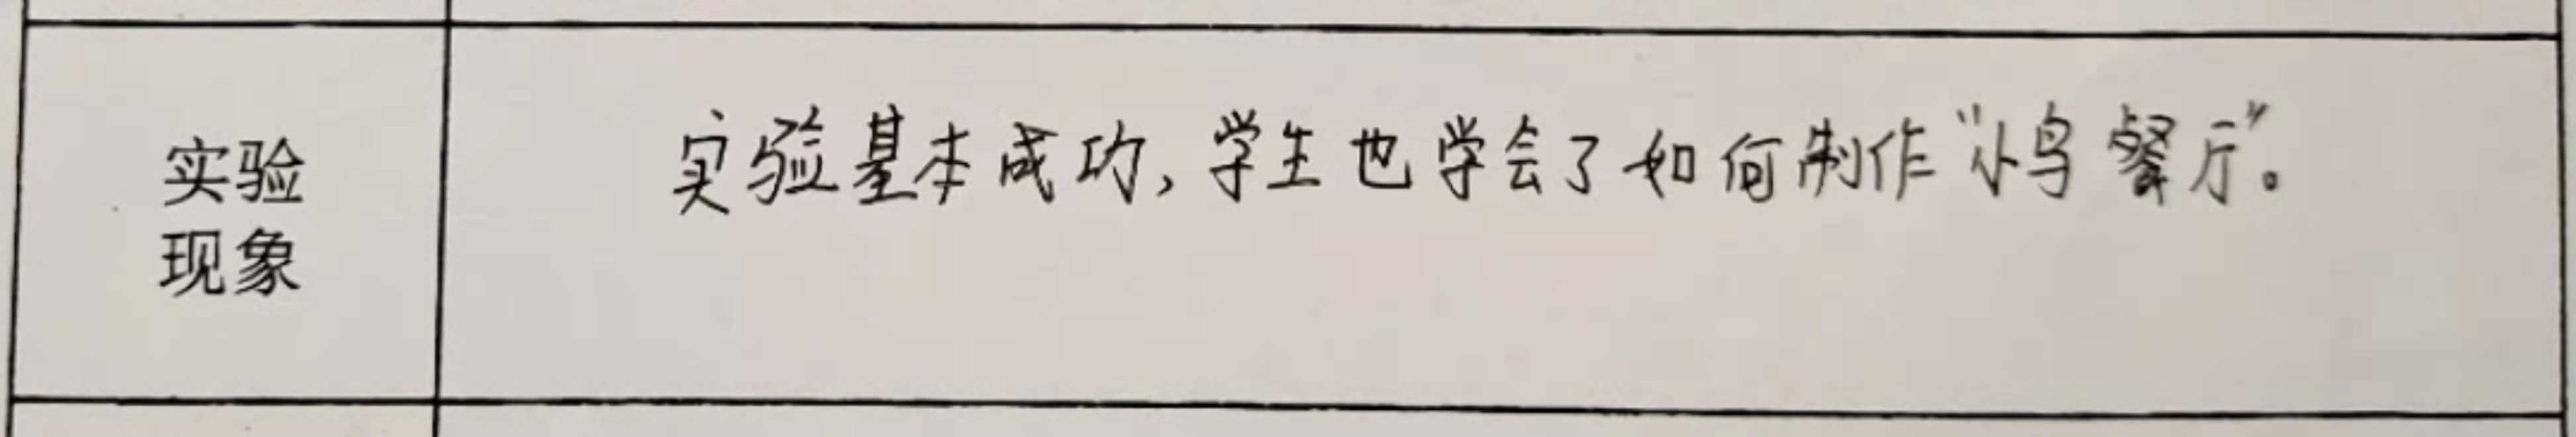 实验
现象
实验基本成功,学生也学会了如何制作“小鸟餐厅”。